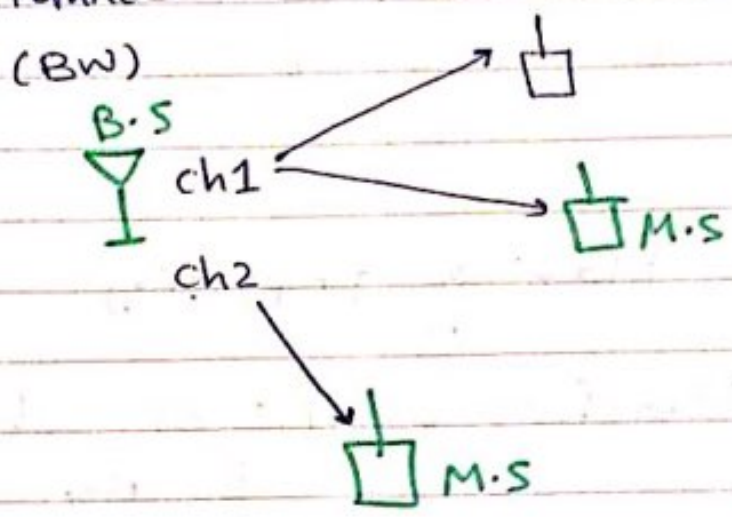 (BW)
B.S
ch1
M.S
ch2
M.S